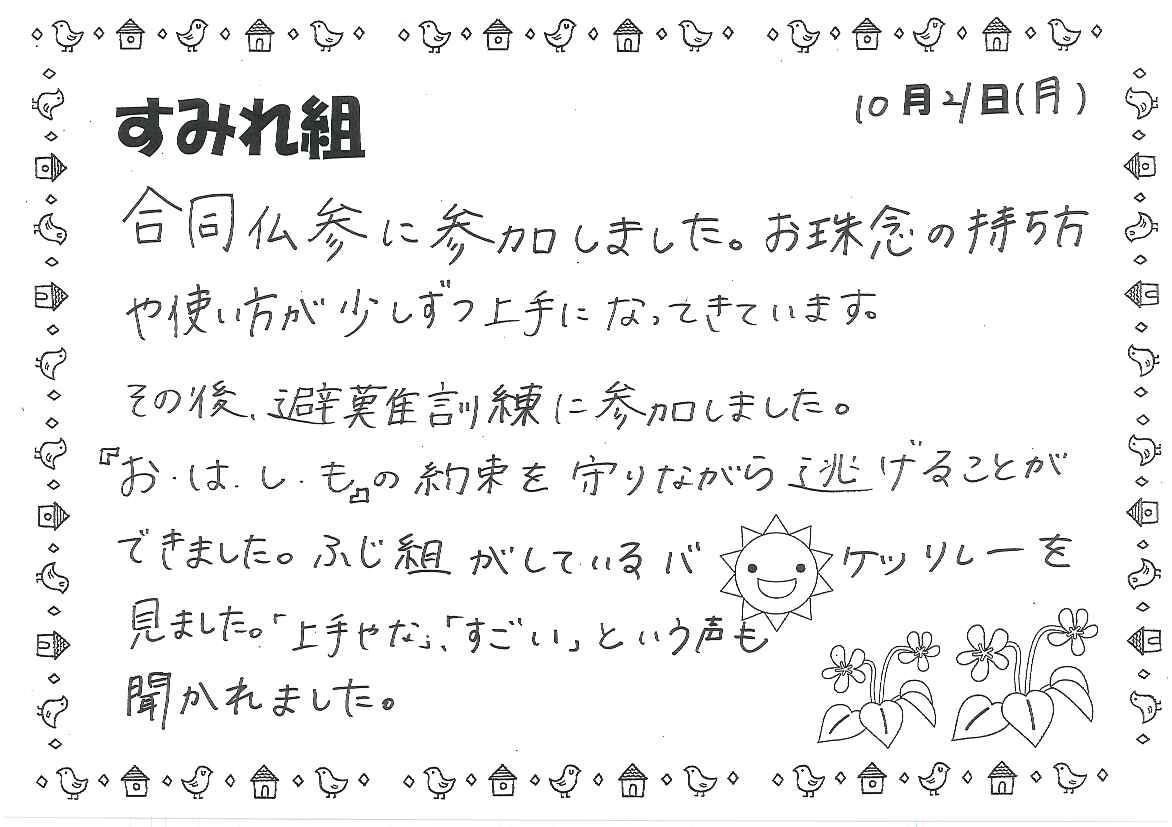 10月21日(月)
すみれ組
合同仏参に参加しました。お珠念の持ち方
や使い方が少しずつ上手になってきています。
その後、避難訓練に参加しました。
『お・は・し・も』の約束を守りながら逃げることが
できました。ふじ組がしているバケツリレーを
見ました。「上手やな」、「すごい」という声も
聞かれました。